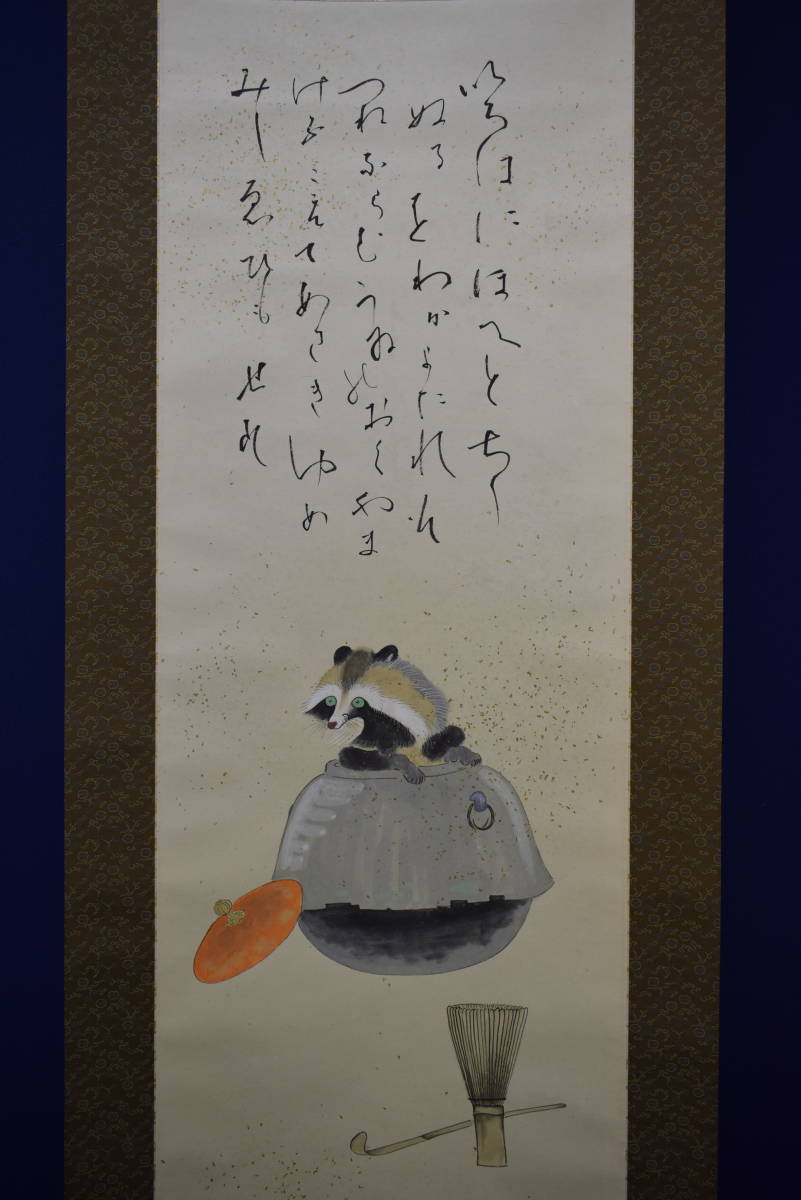 いろはにほへとちり
ぬるをわかよたれそ
つねならむうゐのおくやま
けふこえてあさきゆめ
みしゑひもせす